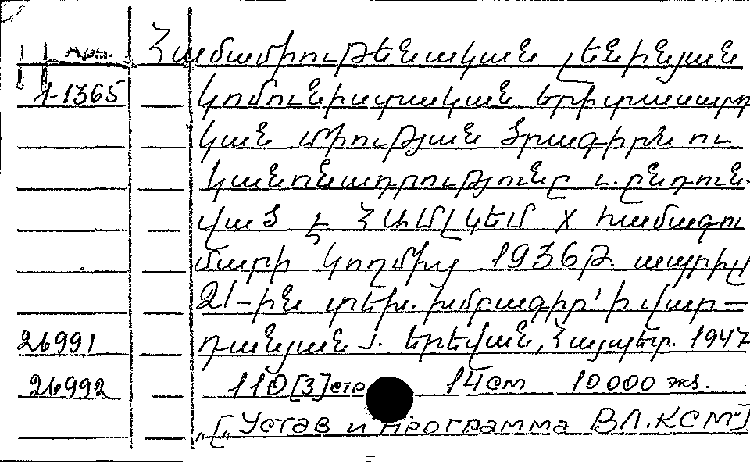 Арм. Համամիութենական լենինյան
1-1365 կոմունիստական երիտասարդ
կան միության ծրագիրն ու
կանոնադրությունը ընդուն-
ված է ՀԱՄԼԿԵՄ X համագու
մարի կողմից 1936թ. ապրիլ
21-ին տեխ. խմբագիր՝ Ի վար-
26991 դանյան Երեվան, Հայպետ. 1947
26992 110[3]стр 14см 10000 экз.
„[„Устав и программа ВЛ.КСМ"]